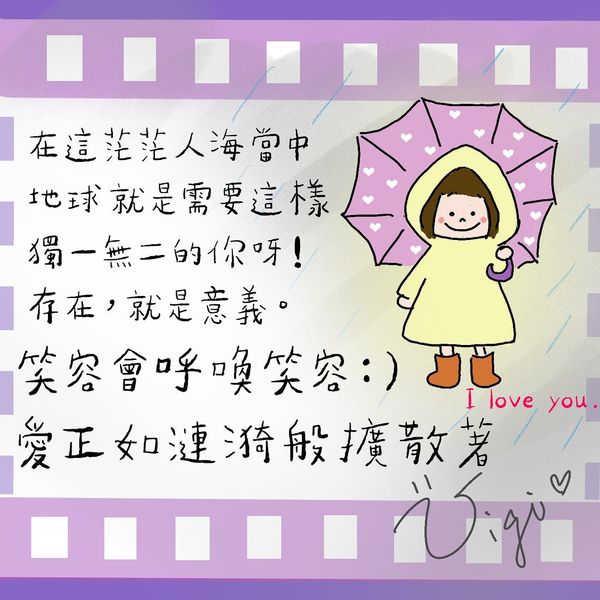 在這茫茫人海當中
地球就是需要這樣
獨一無二的你呀!
存在,就是意義。
笑容會呼喚笑容:)
愛正如漣漪般擴散著
I love you.
Vigi